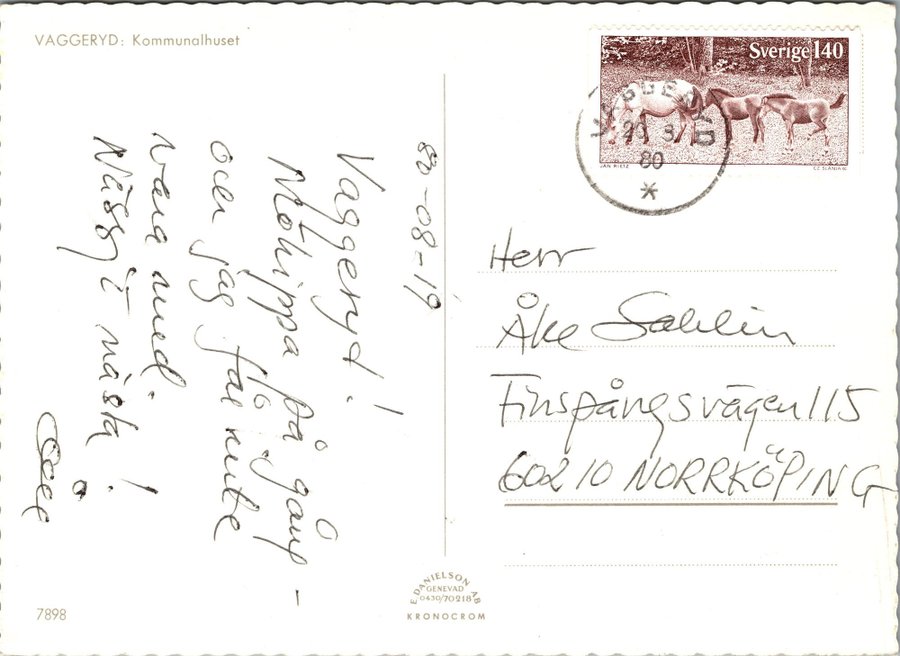 VAGGERYD: Kommunalhuset
80-08-19
Vaggeryd!
Möhippa på gång -
och jag får inte
vara med.
Nässjö nästa!
Sverige 140
JAN RIETZ
CZ SLANIA SC
VAGGERYD
20 8
80
Herr
Åke Sahlin
Finspångsvägen 115
60210 NORRKÖPING
E. DANIELSON AB
GENEVAD
0430/70218
KRONOCROM
7898